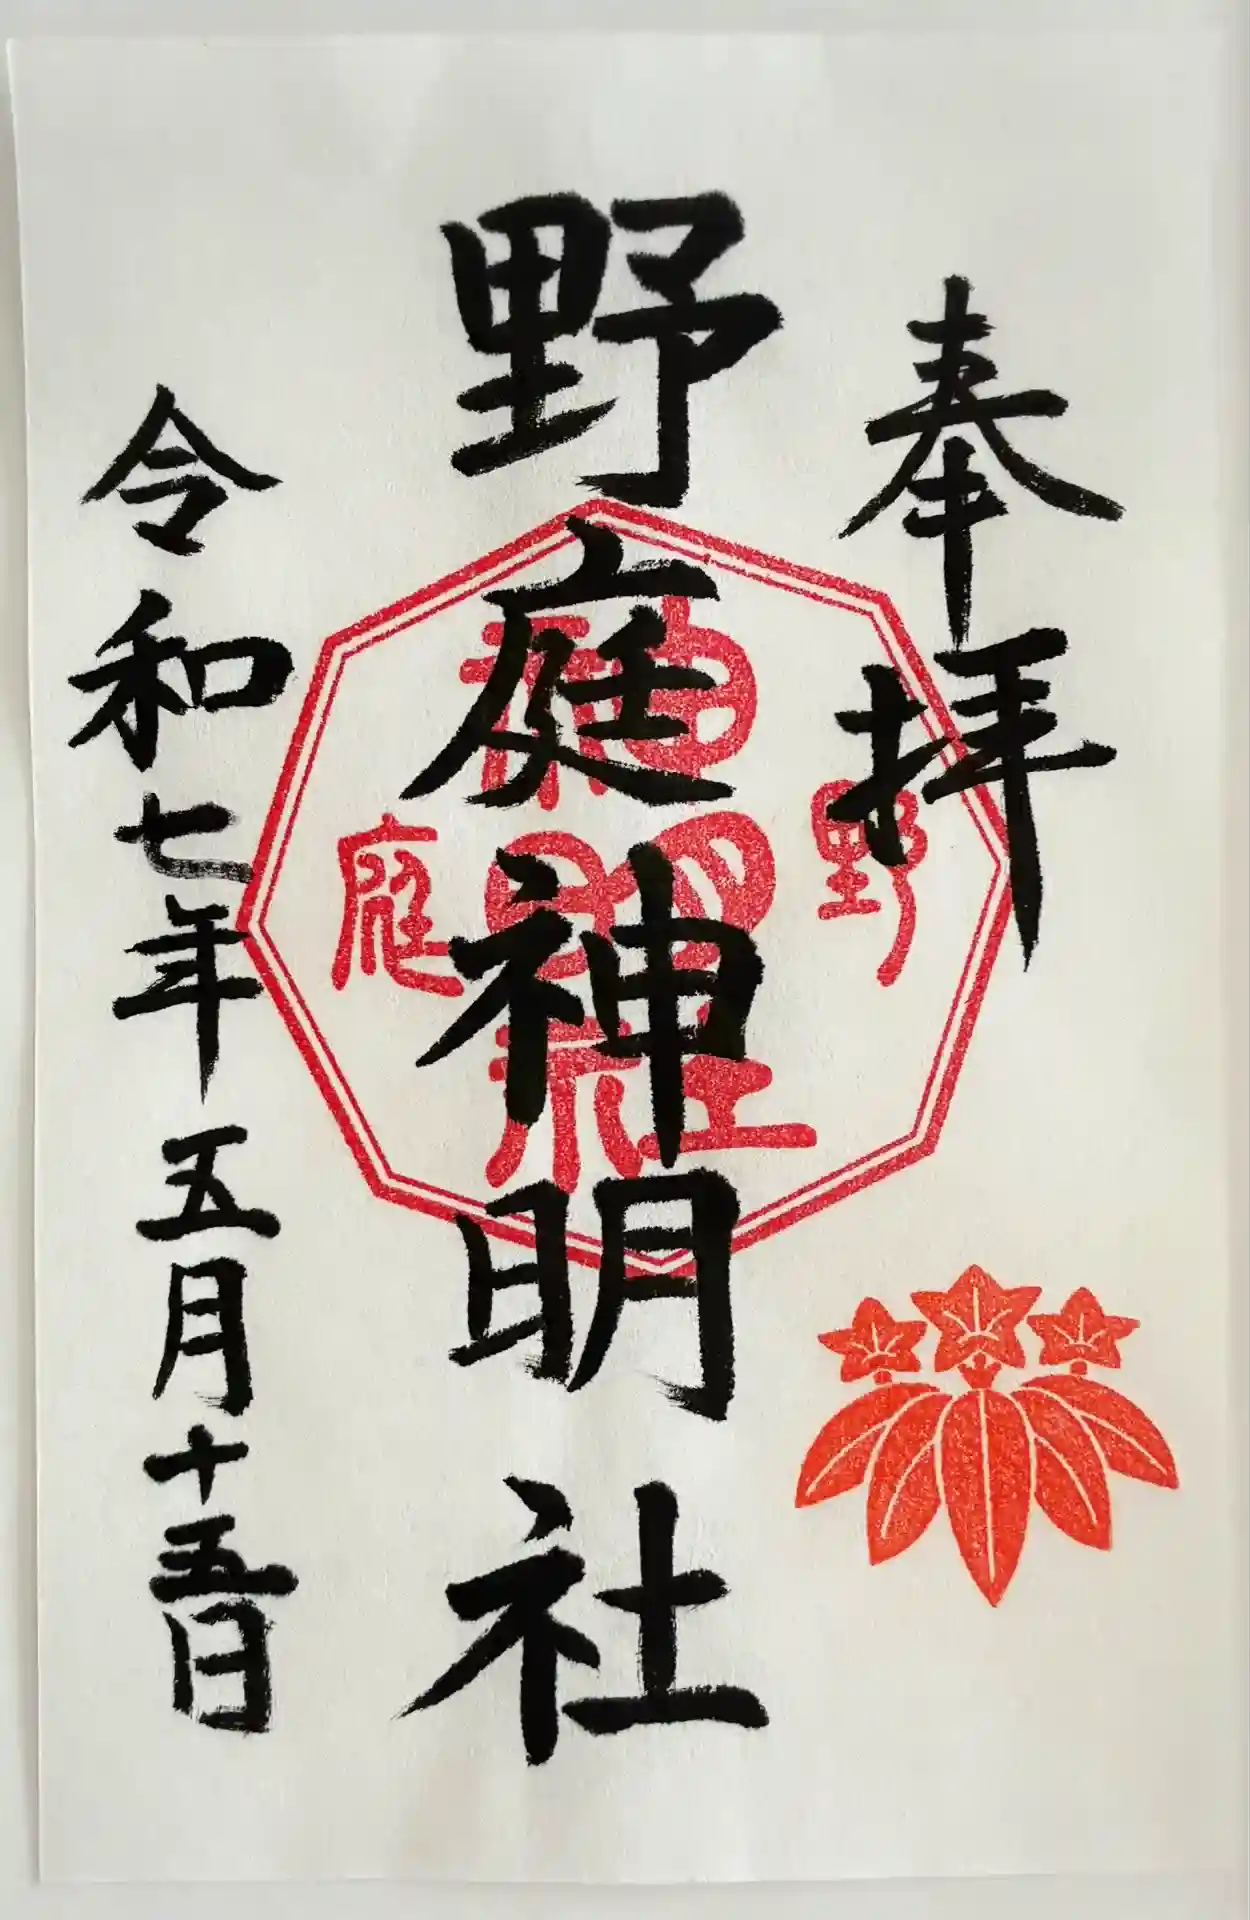 奉拝
野庭神明社
令和七年五月十五日
野
神明社
庭